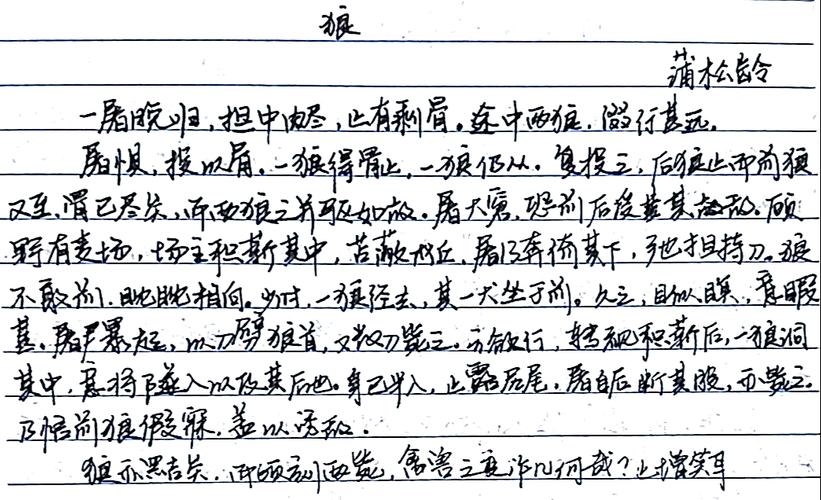 狼
蒲松龄
一屠晚归，担中肉尽，止有剩骨。途中两狼，缀行甚远。
屠惧，投以骨。一狼得骨止，一狼仍从。复投之，后狼止而前狼
又至。骨已尽矣，而两狼之并驱如故。屠大窘，恐前后受其敌。顾
野有麦场，场主积薪其中，苫蔽成丘。屠乃奔倚其下，弛担持刀。狼
不敢前，眈眈相向。少时，一狼径去，其一犬坐于前。久之，目似瞑，意暇
甚。屠暴起，以刀劈狼首，又数刀毙之。方欲行，转视积薪后，一狼洞
其中，意将隧入以攻其后也。身已半入，止露尻尾。屠自后断其股，亦毙之。
乃悟前狼假寐，盖以诱敌。
狼亦黠矣，而顷刻两毙，禽兽之变诈几何哉？止增笑耳